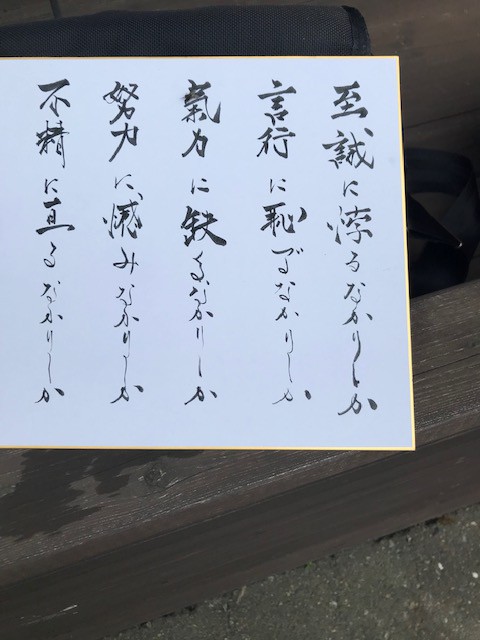 至誠に悖るなかりしか
言行に恥づるなかりしか
氣力に缺くるなかりしか
努力に憾みなかりしか
不精に亘るなかりしか